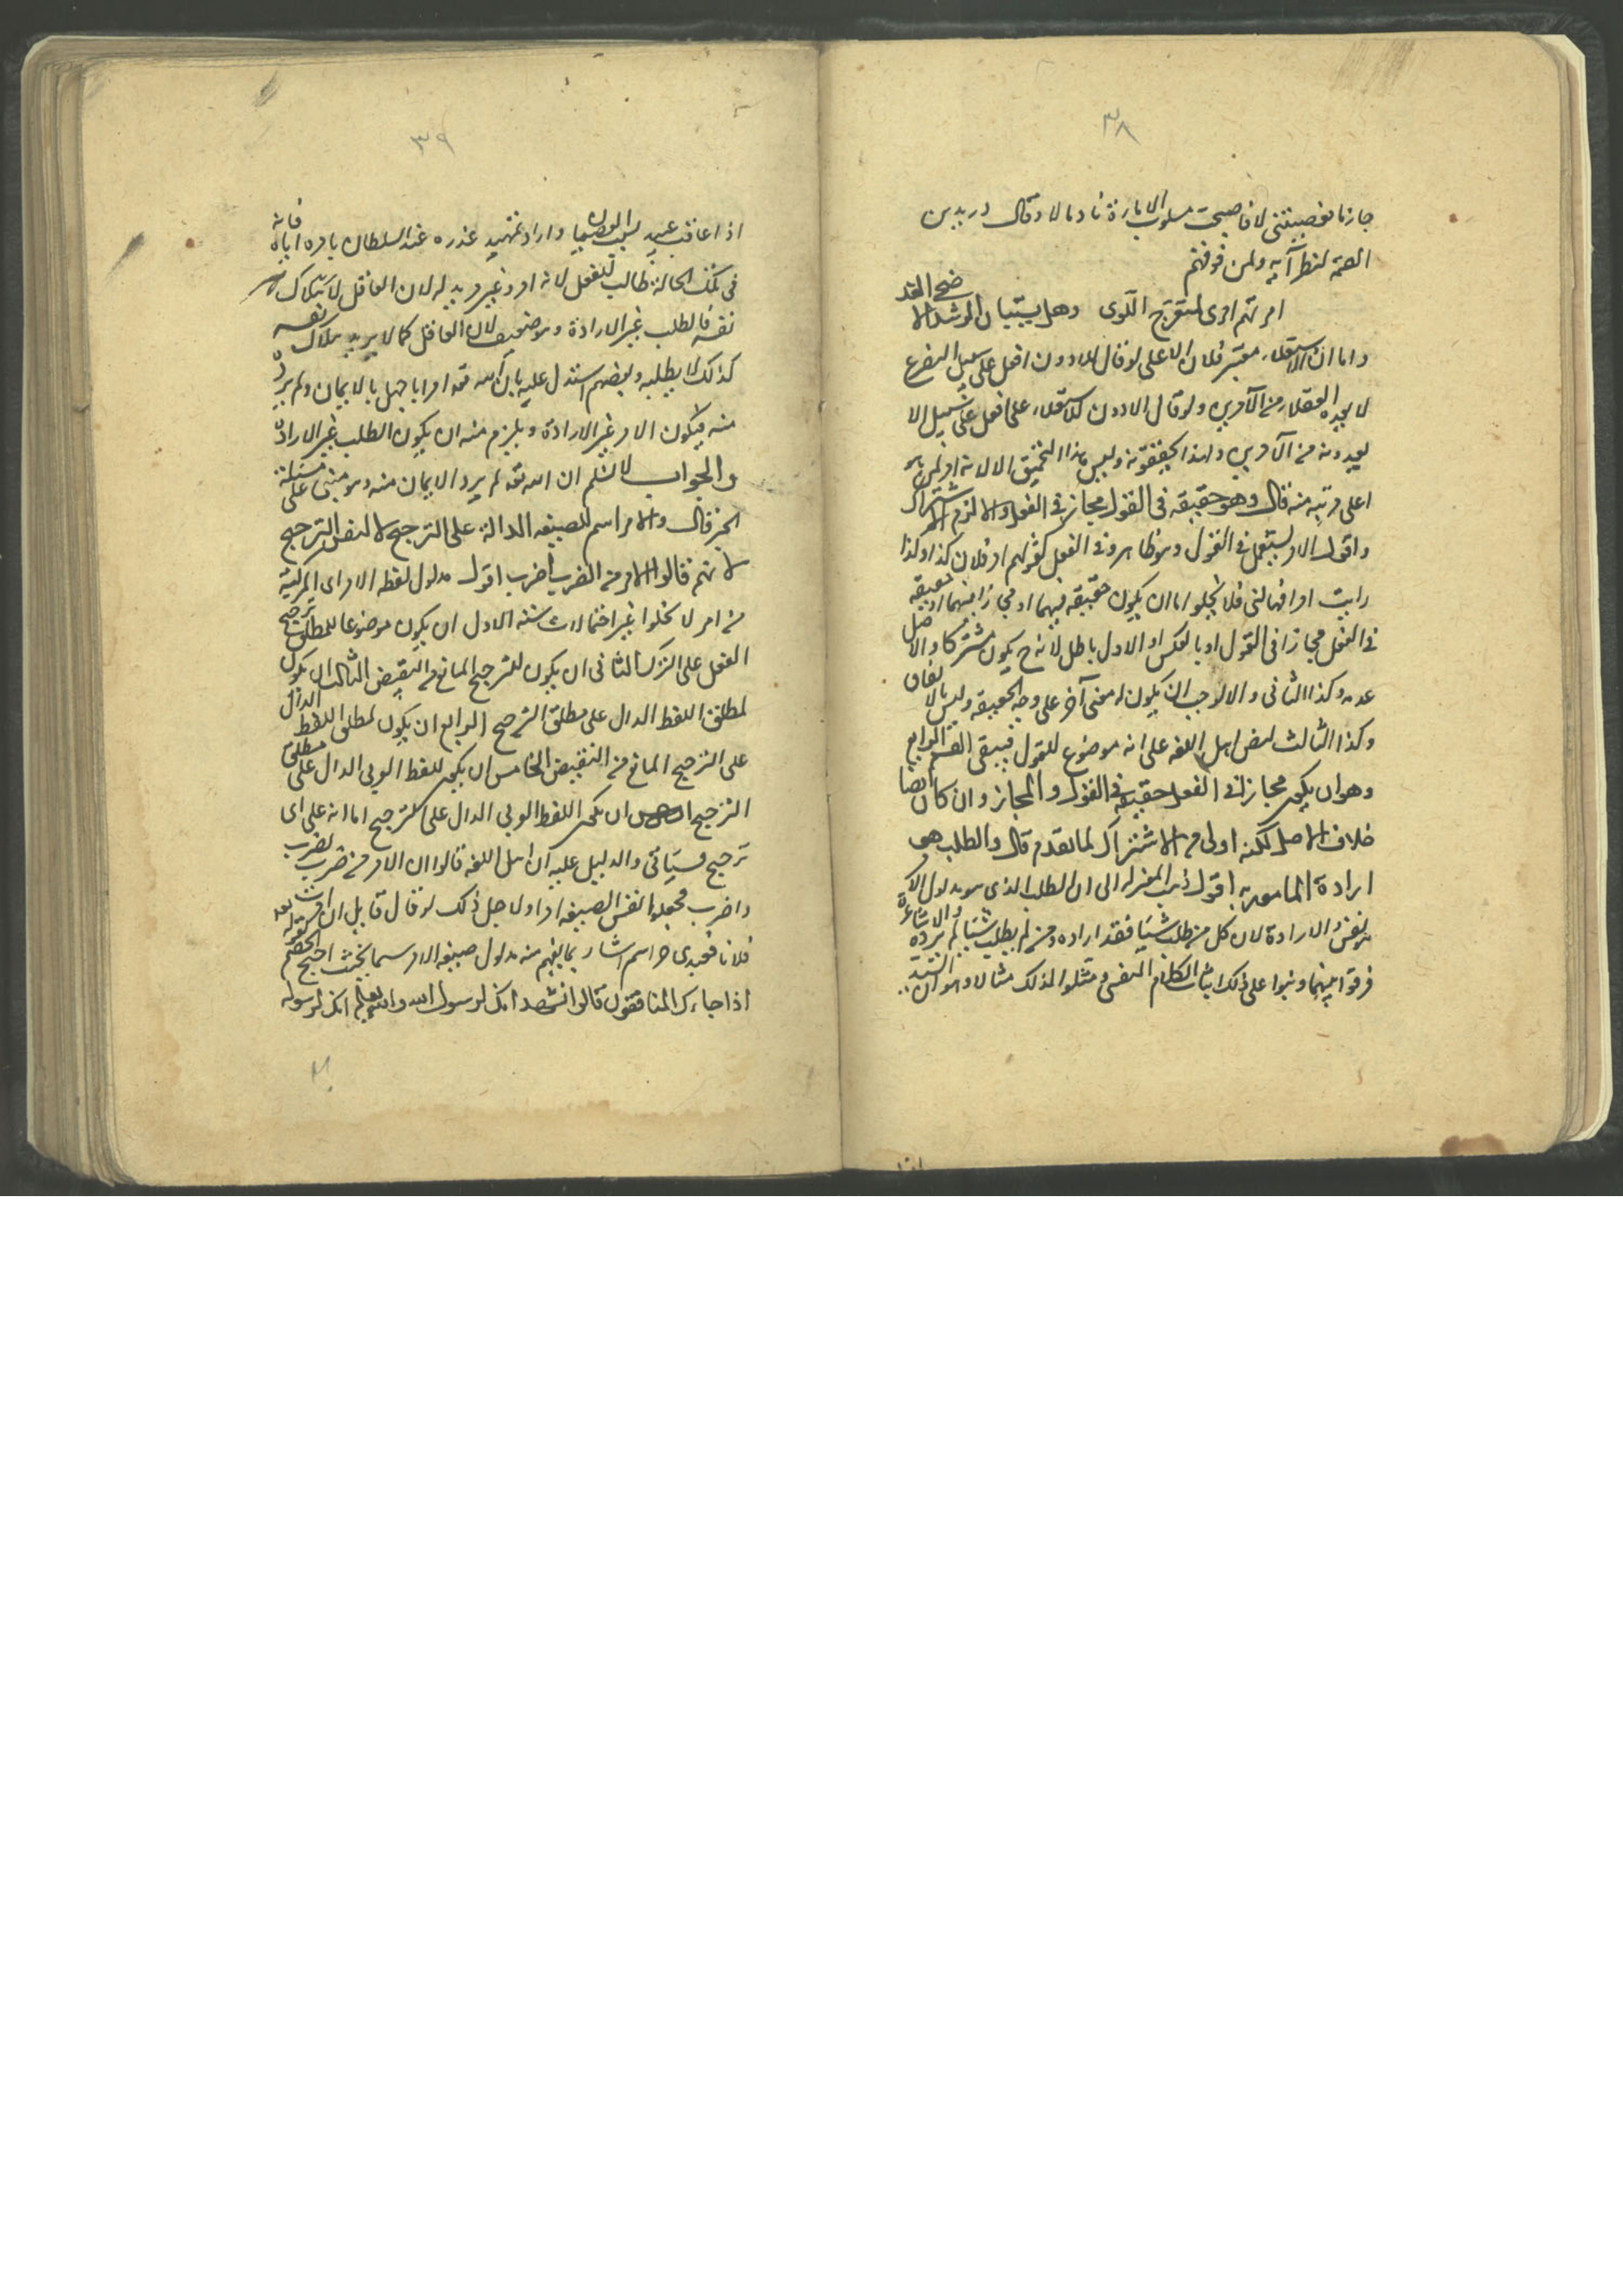 ٣٨
جازما فعصيتنى فاصبحت مسلوب الامارة نادما وقال دريد بن
الصمة لنظرآيه ولمن فوقهم
امرتهم امرى بمنعرج اللوى وهل يستبان الرشد الا ضحى الغد
واما ان الاستعلاء معتبر فلان الاعلى لو قال للادون افعل على سبيل التضرع
لا يعده العقلاء من الآمرين ولو قال الادون للاعلى افعل على سبيل الا
يعدونه من الآمرين ولهذا يحمقونه وليس هذا التحميق الا لانه امر لمن هو
اعلى مرتبه منه قال وهو حقيقه فى القول مجاز فى الفعل والا لزم الاشتراك
واقول الامر يستعمل فى القول وهو ظاهر وفى الفعل كقولهم امر فلان كذا وكذا
رايت امرا هالنى فلا يخلوا اما ان يكون حقيقه فيهما او مجازا فيهما او حقيقه
فى الفعل مجازا فى القول او بالعكس والاول باطل لانه ح يكون مشتركا والاصل
عدمه وكذا الثانى والا لوجب ان يكون له معنى آخر على وجه الحقيقه وليس بالاتفاق
وكذا الثالث لنص اهل اللغه على انه موضوع للقول فيبقى القسم الرابع
وهو ان يكون مجازا فى الفعل حقيقه فى القول والمجاز وان كان ايضا
خلاف الاصل لكنه اولى من الاشتراك لما تقدم قال والطلب هى
ارادة المامور به اقول ذهب المعتزله الى ان الطلب الذى هو مدلول الامر
هو نفس الارادة لان كل من طلب شيئا فقد اراده ومن لم يطلب شيئا لم يرده والاشاعرة
فرقوا بينهما وبنوا على ذلك اثبات الكلام النفسى ومثلوا لذلك مثالا وهو ان السيد
٣٩
اذا عاقب عبده لسبب العصيان واراد تمهيد عذره عند السلطان يامره اياه فانه
فى تلك الحالة طالب للفعل لانه امر وغير مريد له لان العاقل لا يريد هلاك
نفسه فالطلب غير الارادة وهو ضعيف لان العاقل كما لا يريد هلاك نفسه
كذلك لا يطلبه وبعضهم استدل عليه بان الله تعه امر ابا جهل بالايمان ولم يرده
منه فيكون الامر غير الارادة ويلزم منه ان يكون الطلب غير الارادة
والجواب لا نسلم ان الله تعه لم يرد الايمان منه وهو مبنى على مسئلة
الجبر قال والامر اسم للصيغه الدالة على الترجيح لا لنفس الترجيح
لانهم قالوا الامر من الضرب اضرب اقول مدلول لفظه الامر اى المركبة
من امر لا يخلوا غير احتمالات سته الاول ان يكون موضوعا للمطلق ترجيح
الفعل على الترك الثانى ان يكون للترجيح المانع من النقيض الثالث ان يكون
لمطلق اللفظ الدال على مطلق الترجيح الرابع ان يكون لمطلق اللفظ الدال
على الترجيح المانع من النقيض الخامس ان يكون للفظ العربى الدال على مطلق
الترجيح السادس ان يكون اللفظ العربى الدال على الترجيح اما انه على اى
ترجيح فسياتى والدليل عليه ان اهل اللغه قالوا ان الامر من ضرب يضرب
واضرب فجعلوا نفس الصيغه امرا ولاجل ذلك لو قال قايل ان امرت
فلانا فعبدى حر اسم اشار بما يفهم منه مدلول صيغه الامر سما يحنث احتج الخصم بقوله تعه
اذا جاءك المنافقون قالوا نشهد انك لرسول الله والله يعلم انك لرسوله